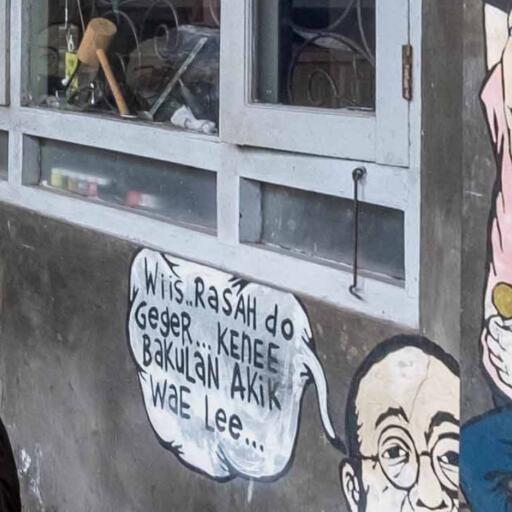 Wiis..RaSAH do
GegeR...KENEE
BaKULaN AKiK
WaE Lee...